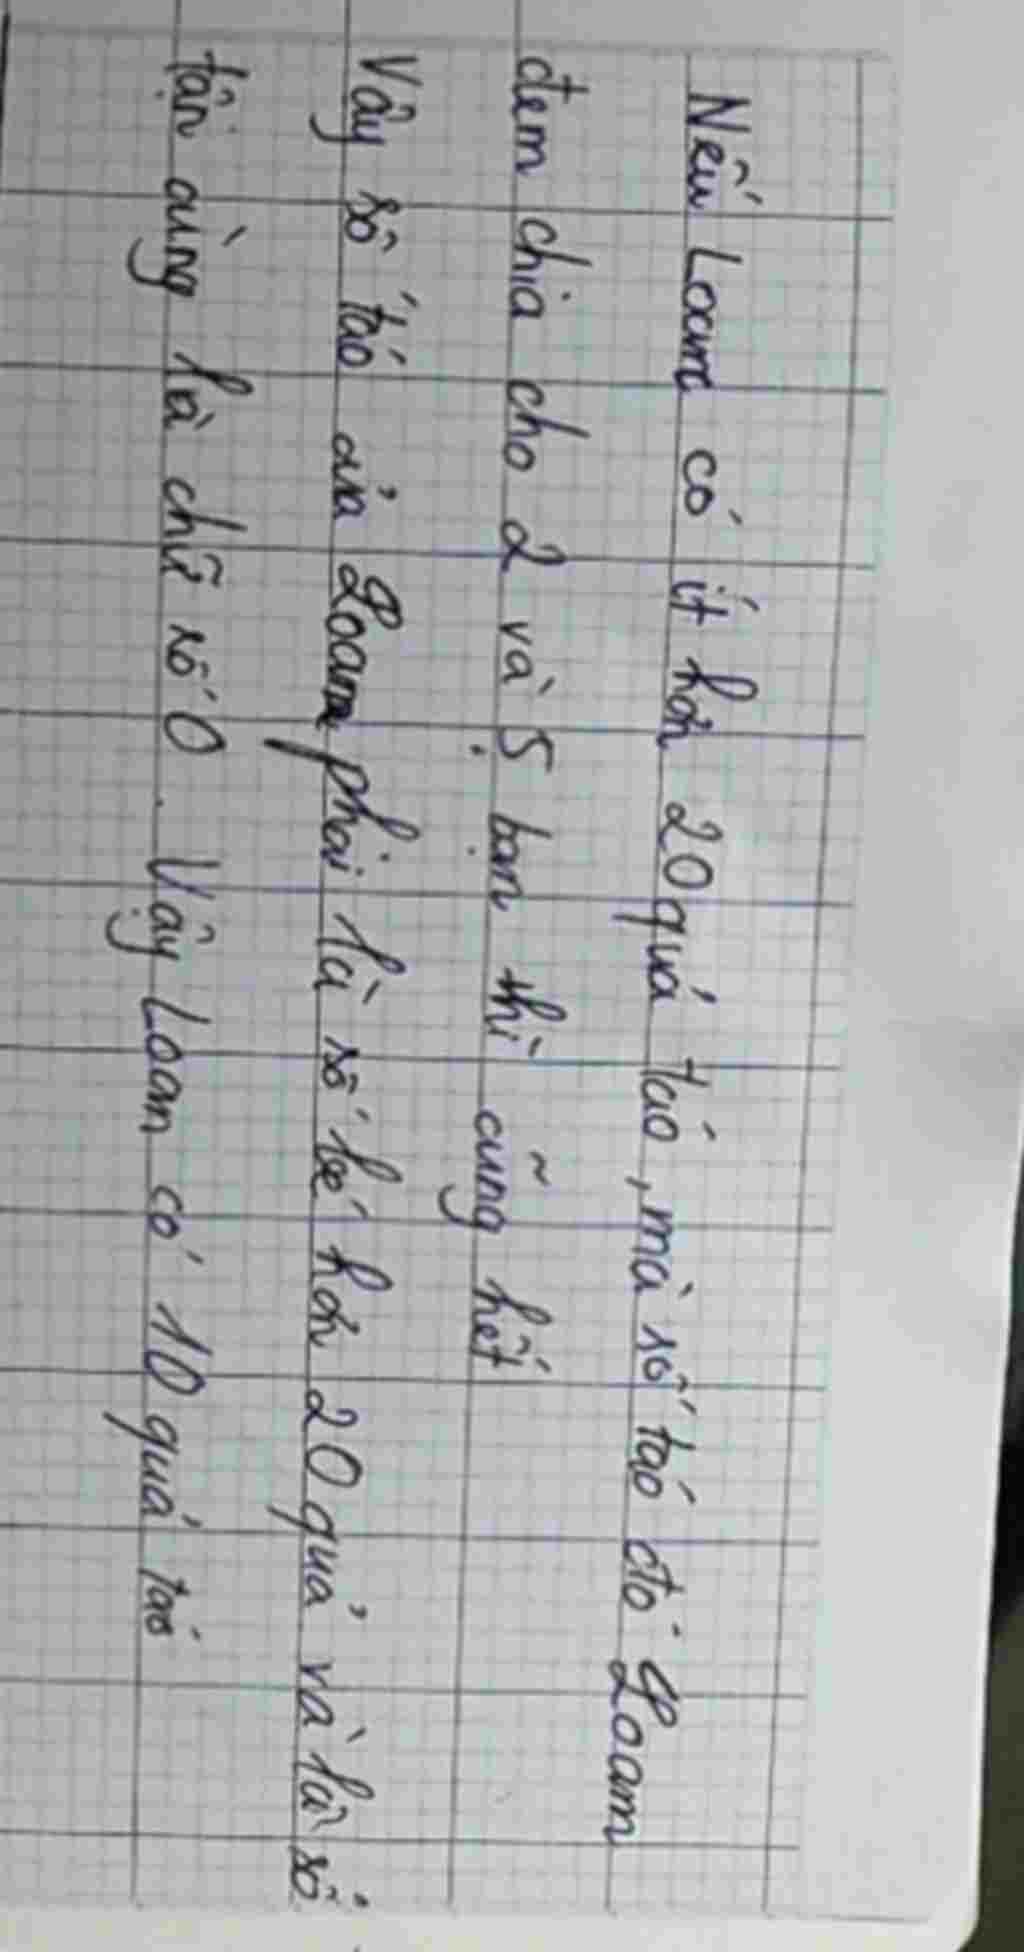 Nếu Loam có ít hơn 20 quá táo, mà số táo đó Loam
đem chia cho 2 và 5 bạn thì cũng hết
Vây số táo của Loam phải là số bé hơn 20 quả và là số
tận cùng là chữ số 0. Vậy Loam có 10 quá táo